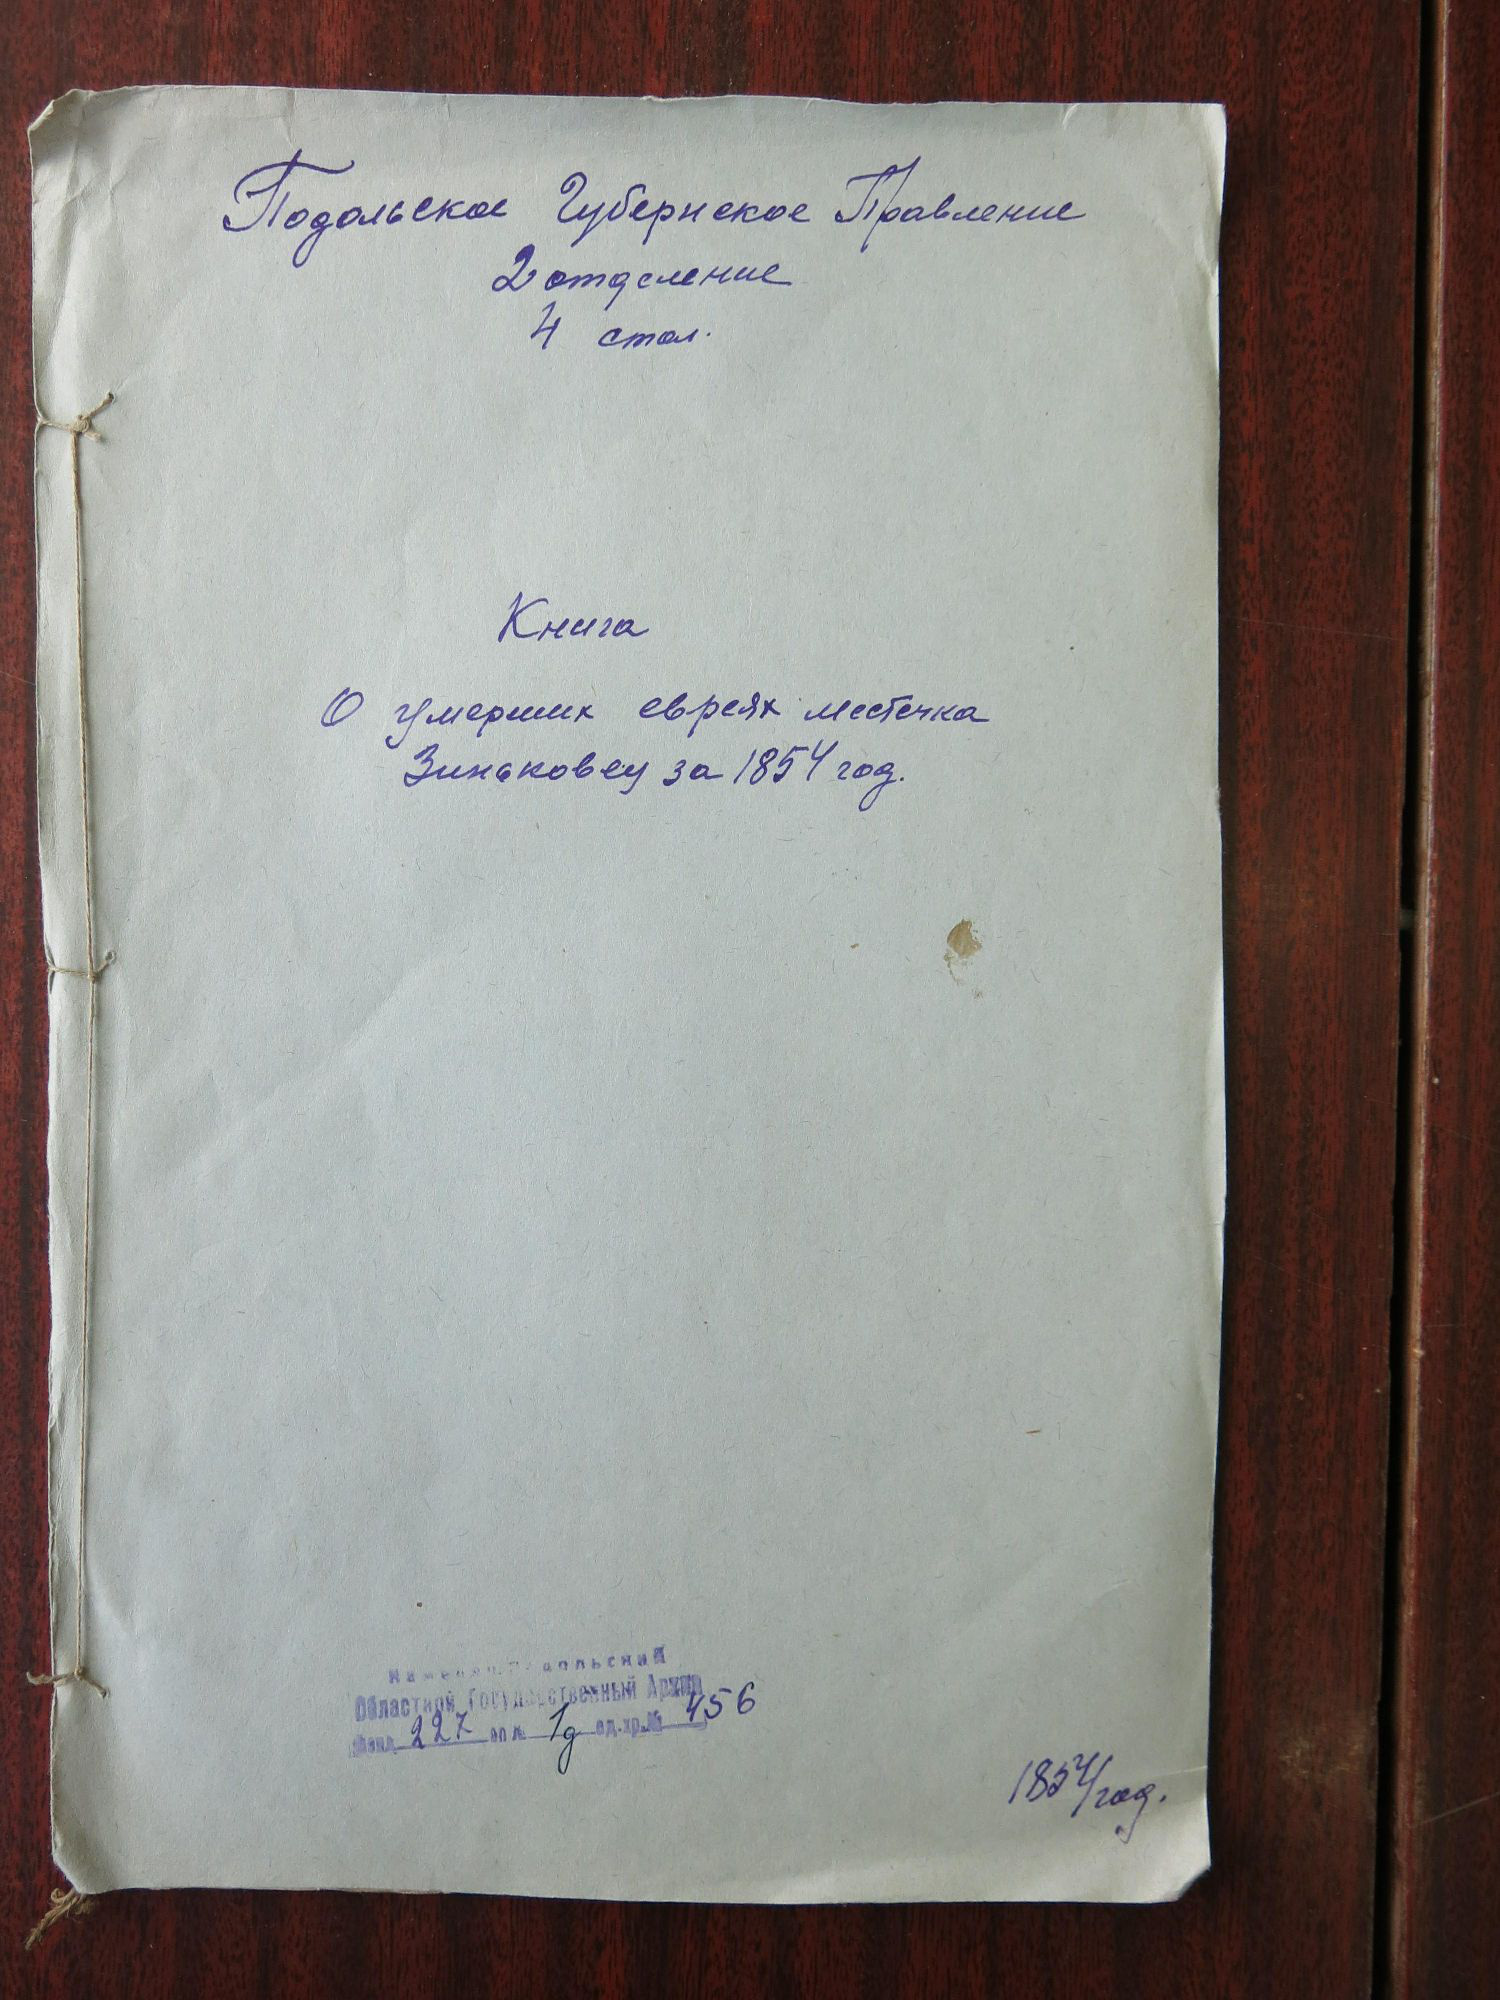 Подольское Губернское Правление
2 отделение
4 стол.
Книга
О умерших евреях местечка
Зиньковец за 1854 год.
Каменец-Подольский
Областной Государственный Архив
Фонд 227 оп. 1д ед.хр.№ 456
1854 год.